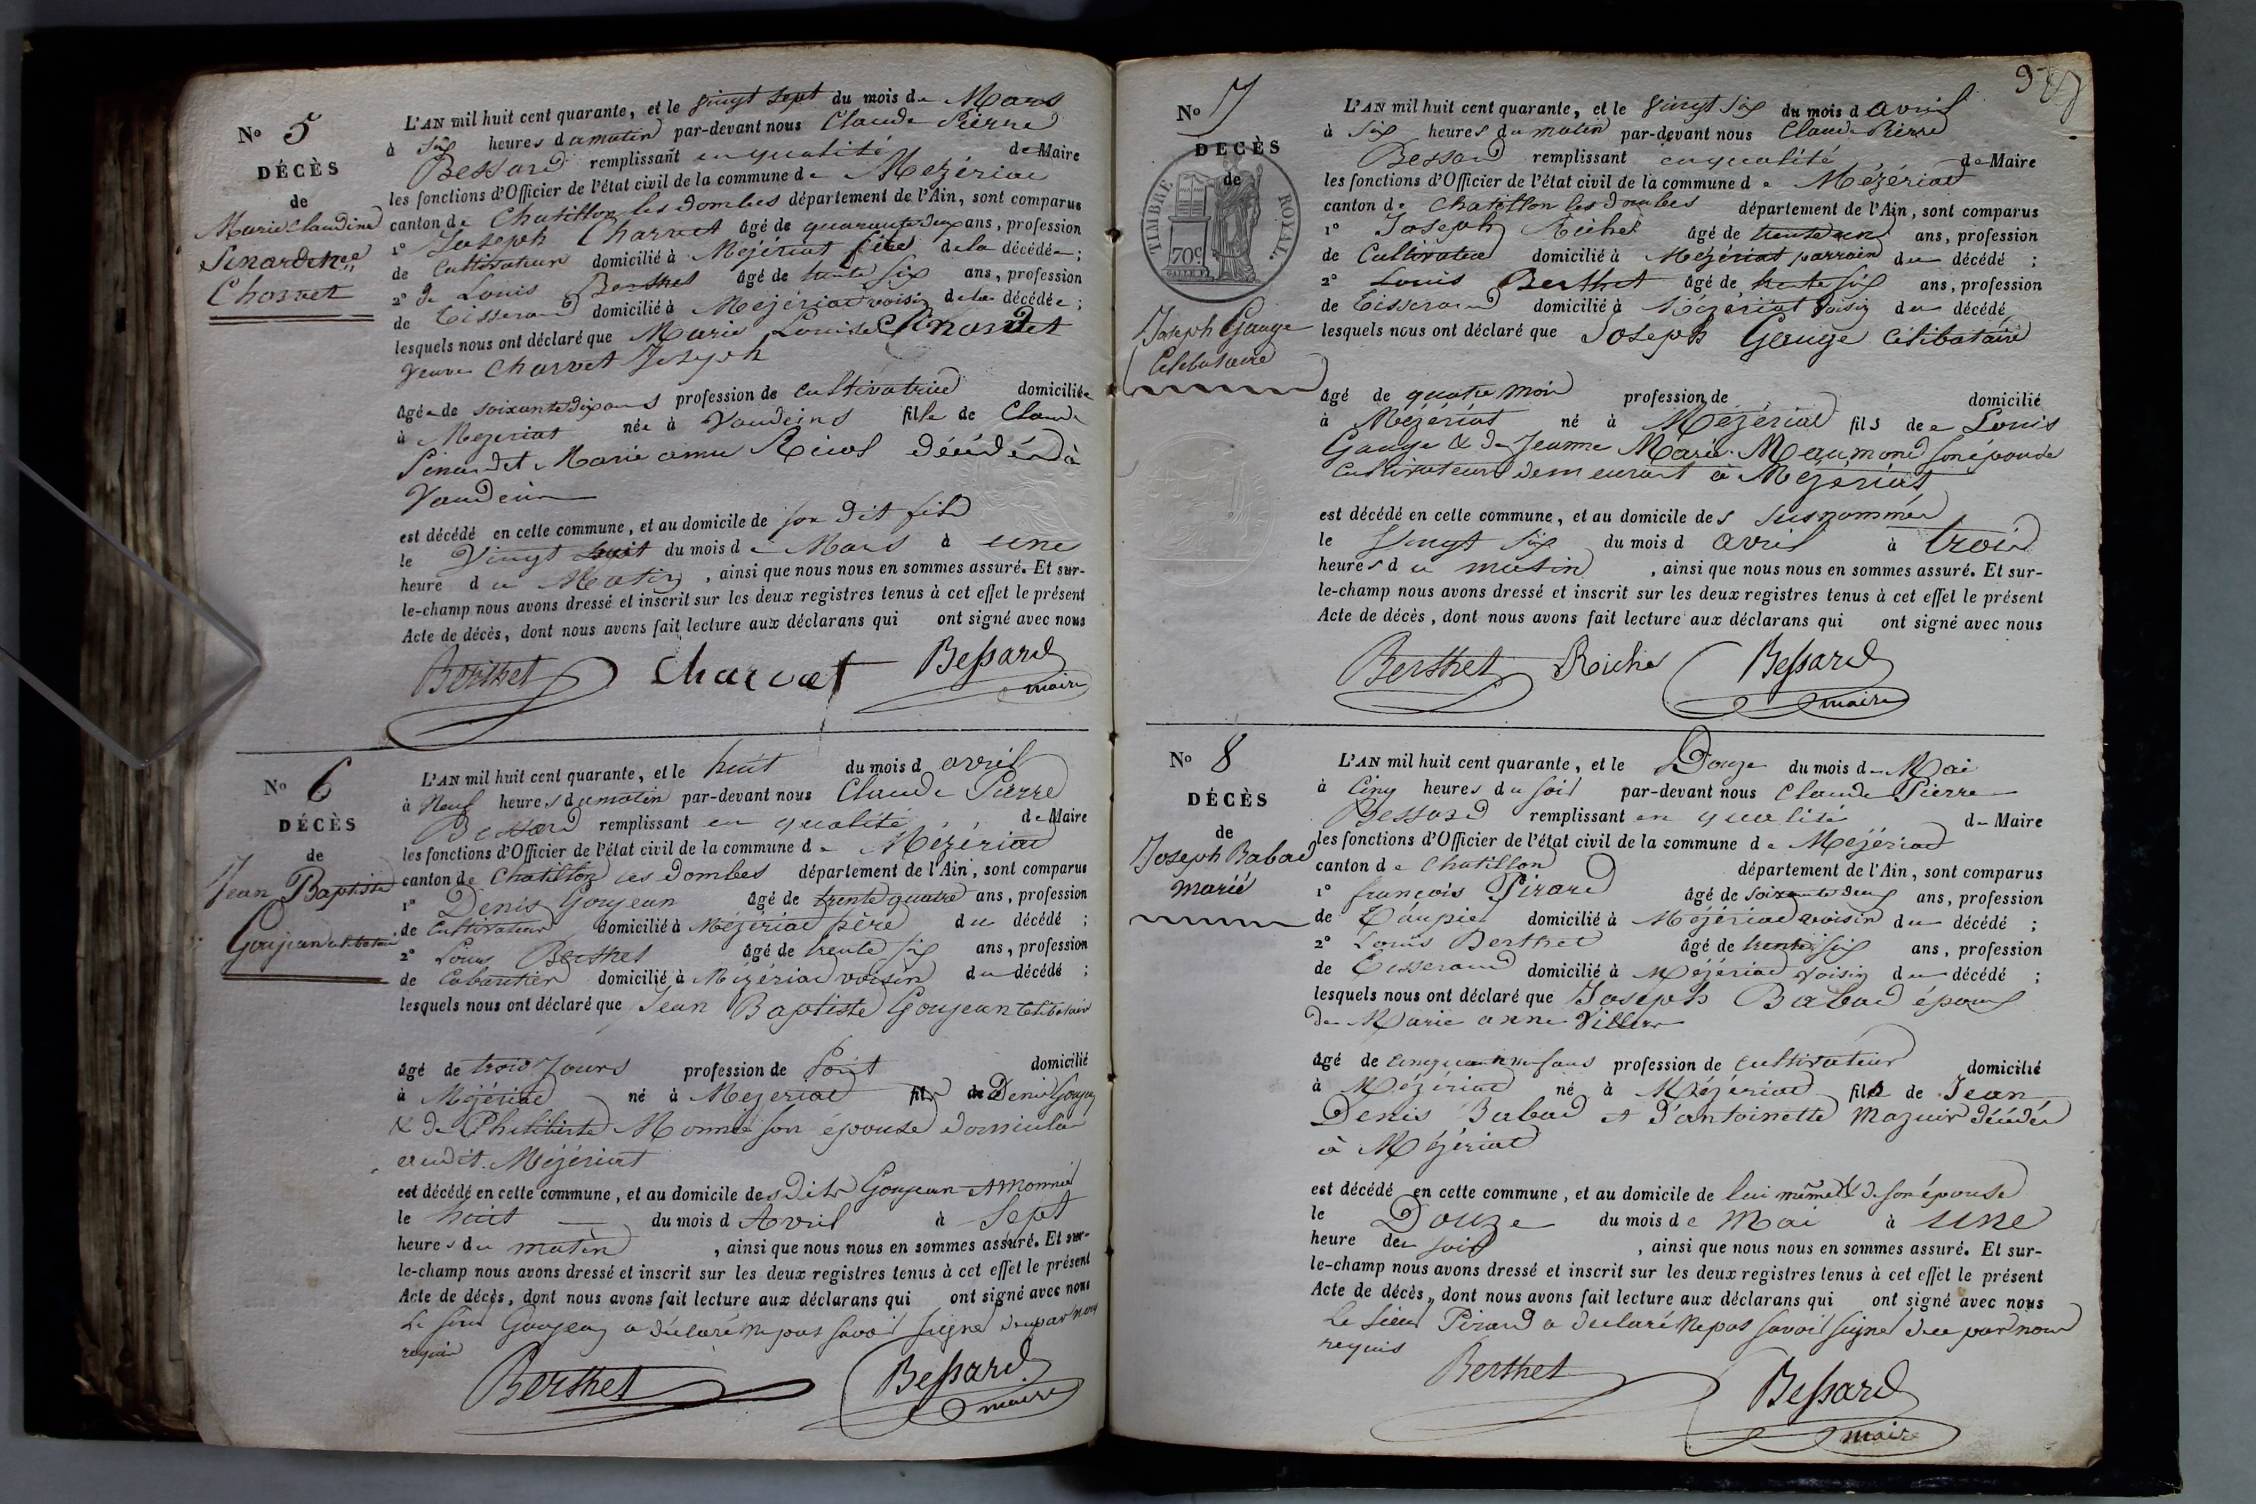 N° 5
DÉCÈS
de
Marie Claudine
Sinardet Vve
Charvet
L'AN mil huit cent quarante, et le vingt sept du mois de Mars
à six heures du matin par-devant nous Claude Pierre
Bessard remplissant en qualité de Maire
les fonctions d'Officier de l'état civil de la commune de Mezériat
canton de Chatillon les dombes département de l'Ain, sont comparus
1° Joseph Charvet âgé de quarante deux ans, profession
de Cultivateur domicilié à Mézériat fils de la décédée ;
2° de Louis Berthet âgé de trente six ans, profession
de Tisserand domicilié à Mézériat voisin de la décédée ;
lesquels nous ont déclaré que Marie Louise Sinardet
veuve Charvet Joseph
âgée de soixante dix ans profession de cultivatrice domiciliée
à Mezeriat née à Vandeins fille de Claude
Sinardet Marie anne décédés à
Vandeins
est décédé en cette commune, et au domicile de son dit fils
le Vingt huit du mois de Mars à une
heure du Matin, ainsi que nous nous en sommes assuré. Et sur-
le-champ nous avons dressé et inscrit sur les deux registres tenus à cet effet le présent
Acte de décès, dont nous avons fait lecture aux déclarans qui ont signé avec nous
Berthet Charvet Bessard
maire
N° 6
DÉCÈS
de
Jean Baptiste
Goujean célibataire
L'AN mil huit cent quarante, et le huit du mois d avril
à Neuf heures du matin par-devant nous Claude Pierre
Bessard remplissant en qualité de Maire
les fonctions d'Officier de l'état civil de la commune de Mézériat
canton de Chatillon les dombes département de l'Ain, sont comparus
1° Denis Goujean âgé de trente quatre ans, profession
de Cultivateur domicilié à Mézériat père du décédé ;
2° Louis Berthet âgé de trente six ans, profession
de Cabaretier domicilié à Mézériat voisin du décédé ;
lesquels nous ont déclaré que Jean Baptiste Goujean Célibataire
âgé de trois Jours profession de Point domicilié
à Mézériat né à Mezeriat fils de Denis Goujean
& de Philiberte Monnié son épouse domiciliés
audit Mézériat
est décédé en cette commune, et au domicile des dits Goujean & Monnié
le huit du mois d Avril à Sept
heures du matin, ainsi que nous nous en sommes assuré. Et sur-
le-champ nous avons dressé et inscrit sur les deux registres tenus à cet effet le présent
Acte de décès, dont nous avons fait lecture aux déclarans qui ont signé avec nous
Le sieur Goujean a déclaré ne pas savoir signé de ce par nous
requis
Berthet Bessard
maire
9
N° 7
DÉCÈS
de
TIMBRE ROYAL.
70c
Joseph Gauge
Célibataire
L'AN mil huit cent quarante, et le vingt six du mois d avril
à Six heures du matin par-devant nous Claude Pierre
Bessard remplissant en qualité de Maire
les fonctions d'Officier de l'état civil de la commune de Mézériat
canton de Chatillon les dombes département de l'Ain, sont comparus
1° Joseph Riche âgé de trente un ans, profession
de Cultivateur domicilié à Mézériat parrain du décédé ;
2° Louis Berthet âgé de trente six ans, profession
de Tisserand domicilié à Mézériat voisin du décédé
lesquels nous ont déclaré que Joseph Gauge célibataire
âgé de quatre mois profession de domicilié
à Mézériat né à Mezériat fils de Louis
Gauge & de Jeanne Marie Maumont son épouse
cultivateurs demeurant à Mézériat
est décédé en cette commune, et au domicile des susnommés
le Vingt six du mois d avril à trois
heures du matin, ainsi que nous nous en sommes assuré. Et sur-
le-champ nous avons dressé et inscrit sur les deux registres tenus à cet effet le présent
Acte de décès, dont nous avons fait lecture aux déclarans qui ont signé avec nous
Berthet Riche Bessard
maire
N° 8
DÉCÈS
de
Joseph Babad
marié
L'AN mil huit cent quarante, et le Douze du mois de Mai
à Cinq heures du soir par-devant nous Claude Pierre
Bessard remplissant en qualité de Maire
les fonctions d'Officier de l'état civil de la commune de Mézériat
canton de Chatillon département de l'Ain, sont comparus
1° françois Pirard âgé de soixante deux ans, profession
de Taupier domicilié à Mézériat voisin du décédé ;
2° Louis Berthet âgé de trente six ans, profession
de Tisserand domicilié à Mézériat voisin du décédé ;
lesquels nous ont déclaré que Joseph Babad époux
de Marie anne Villier
âgé de cinquante neuf ans profession de cultivateur domicilié
à Mézériat né à Mézériat fils de Jean
Denis Babad et d'antoinette Mazuir décédés
à Mézériat
est décédé en cette commune, et au domicile de lui même & de son épouse
le Douze du mois de Mai à une
heure du soir, ainsi que nous nous en sommes assuré. Et sur-
le-champ nous avons dressé et inscrit sur les deux registres tenus à cet effet le présent
Acte de décès, dont nous avons fait lecture aux déclarans qui ont signé avec nous
Le sieur Pirard a déclaré ne pas savoir signé de ce par nous
requis
Berthet Bessard
maire